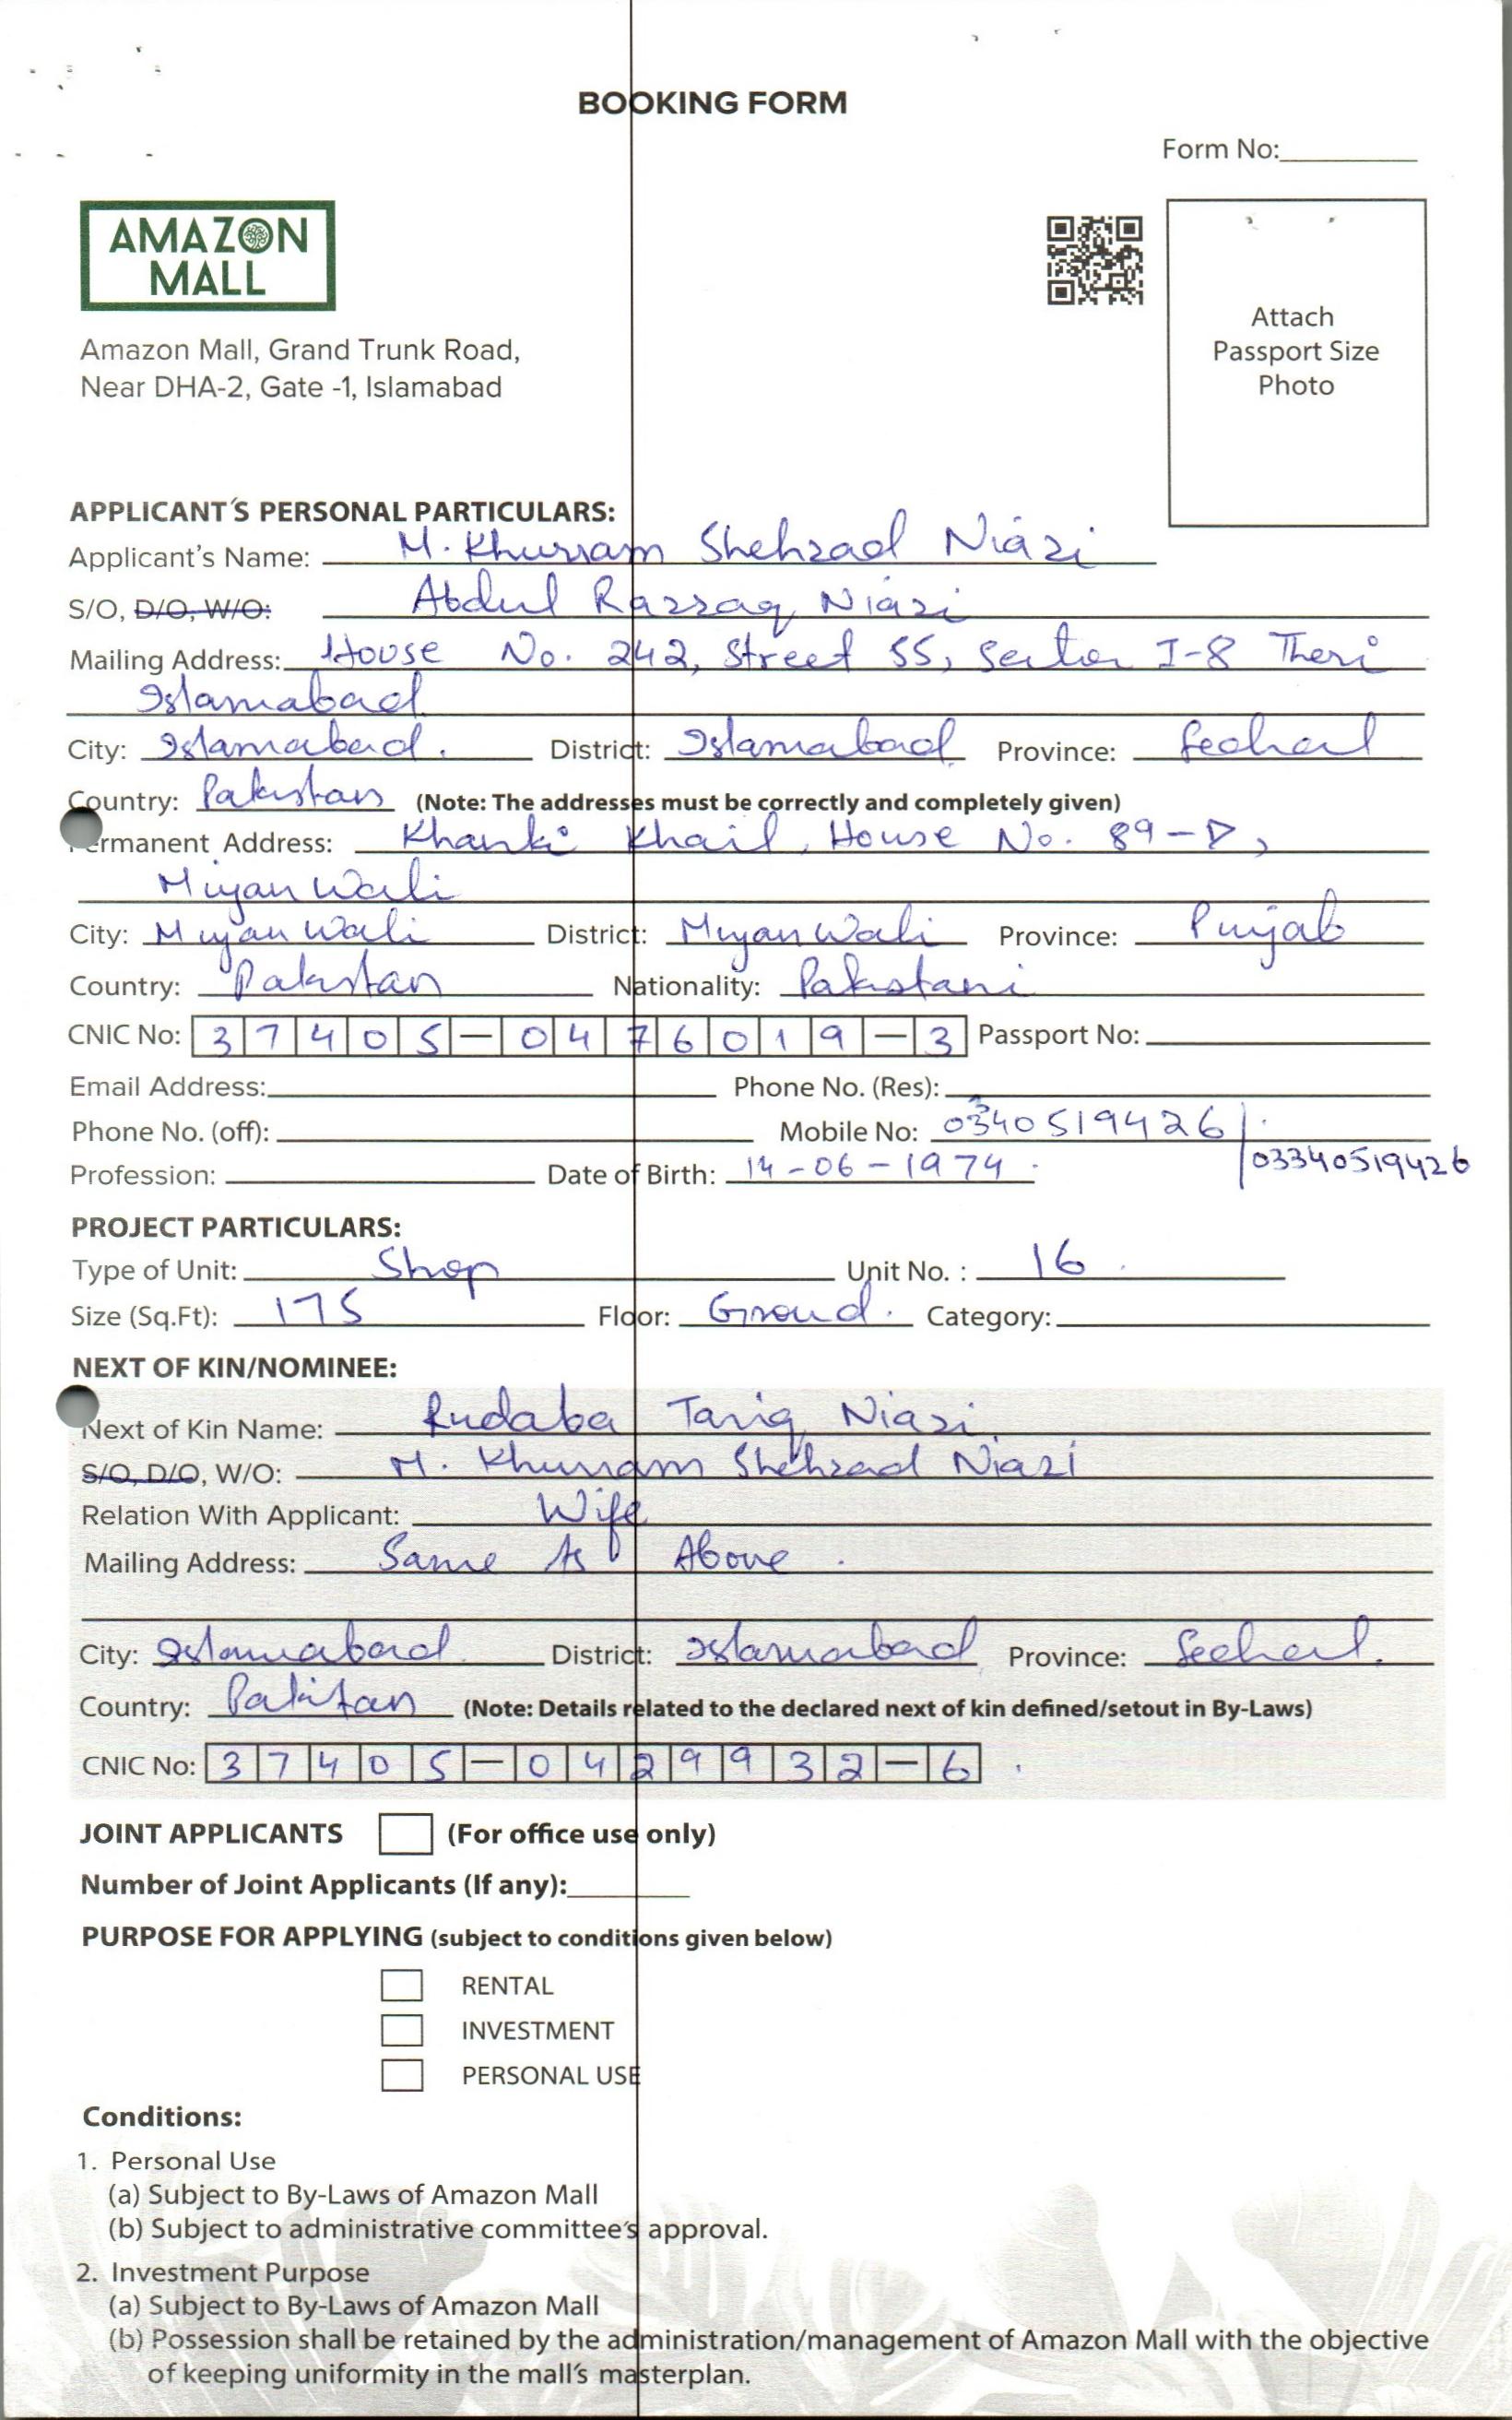 BOOKING FORM
Form No:
AMAZON
MALL
Attach
Passport Size
Photo
Amazon Mall, Grand Trunk Road,
Near DHA-2, Gate -1, Islamabad
APPLICANT'S PERSONAL PARTICULARS:
Applicant's Name: M. Khurram Shehzad Niazi
S/O, D/O, W/O: Abdul Razzaq Niazi
Mailing Address: House No. 242, Street 55, Sector I-8
Islamabad
City: Islamabad. District: Islamabad Province: Fedral
Country: Pakistan (Note: The addresses must be correctly and completely given)
Permanent Address: Khanki Khail, House No. 89-D,
Miyan Wali
City: Miyan Wali District: Miyan Wali Province: Punjab
Country: Pakistan Nationality: Pakistani
CNIC No: 37405-0476019-3 Passport No:
Email Address: Phone No. (Res):
Phone No. (off): Mobile No: 03340519426 /
Profession: Date of Birth: 14-06-1974. 03340519426
PROJECT PARTICULARS:
Type of Unit: Shop Unit No. : 16
Size (Sq.Ft): 175 Floor: Ground. Category:
NEXT OF KIN/NOMINEE:
Next of Kin Name: Rudaba Tariq Niazi
S/O, D/O, W/O: M. Khurram Shehzad Niazi
Relation With Applicant: Wife
Mailing Address: Same As Above.
City: Islamabad District: Islamabad Province: Fedral.
Country: Pakistan (Note: Details related to the declared next of kin defined/setout in By-Laws)
CNIC No: 37405-0429932-6
JOINT APPLICANTS (For office use only)
Number of Joint Applicants (If any):
PURPOSE FOR APPLYING (subject to conditions given below)
RENTAL
INVESTMENT
PERSONAL USE
Conditions:
1. Personal Use
(a) Subject to By-Laws of Amazon Mall
(b) Subject to administrative committee's approval.
2. Investment Purpose
(a) Subject to By-Laws of Amazon Mall
(b) Possession shall be retained by the administration/management of Amazon Mall with the objective
of keeping uniformity in the mall's masterplan.